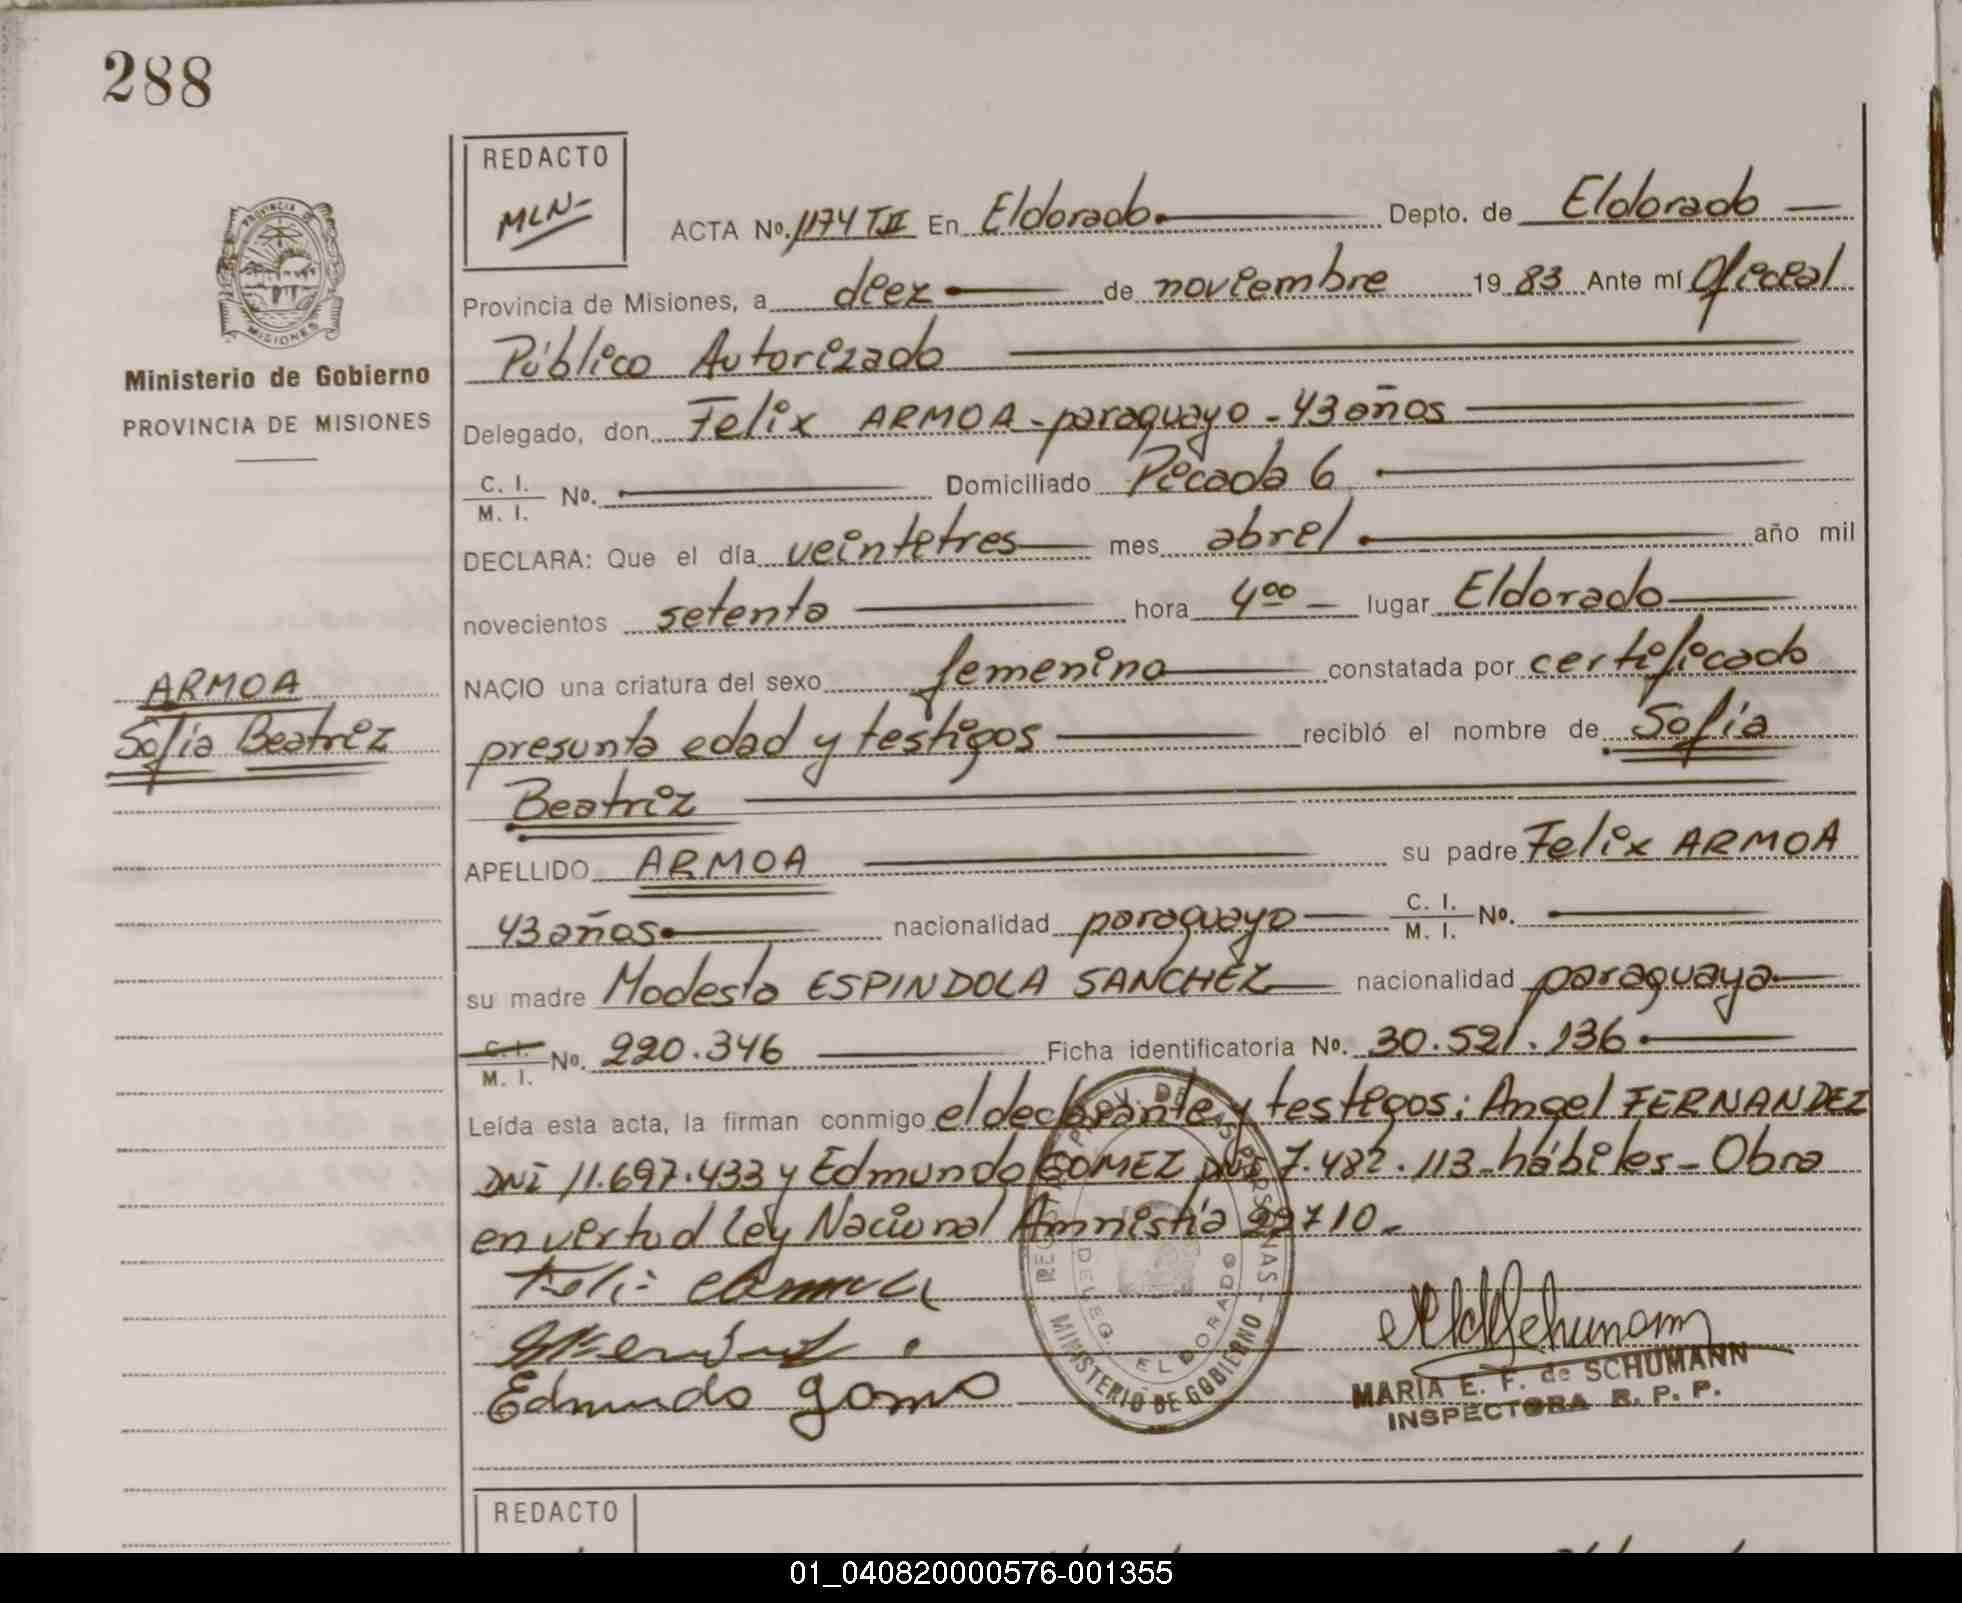 288
REDACTO
MLN-
ACTA No. 1174 TII En Eldorado Depto. de Eldorado
Provincia de Misiones, a diez de noviembre 1983 Ante mí Oficial
Público Autorizado
Delegado, don Felix ARMOA - paraguayo - 43 años
C. I. / M. I. No. Domiciliado Picada 6
DECLARA: Que el día veintitres mes abril año mil
novecientos setenta hora 4 00 lugar Eldorado
NACIO una criatura del sexo femenino constatada por certificado
presunta edad y testigos recibió el nombre de Sofía
Beatriz
APELLIDO ARMOA su padre Felix ARMOA
43 años nacionalidad paraguayo C. I. / M. I. No.
su madre Modesta ESPINDOLA SANCHEZ nacionalidad paraguaya
C. I. / M. I. No. 220.346 Ficha identificatoria No. 30.521.136
Leída esta acta, la firman conmigo el declarante y testigos: Angel FERNANDEZ
DNI 11.697.433 y Edmundo GOMEZ DNI 7.482.113 - hábiles - Obra
en virtud Ley Nacional Amnistía 22710.
Edmundo Gomo
MARIA E. F. de SCHUMANN
INSPECTORA R. P. P.
PROVINCIA DE
MISIONES
Ministerio de Gobierno
PROVINCIA DE MISIONES
ARMOA
Sofía Beatriz
REG. PROV. DE LAS PERSONAS
DELEG. ELDORADO
MINISTERIO DE GOBIERNO
REDACTO
01_040820000576-001355